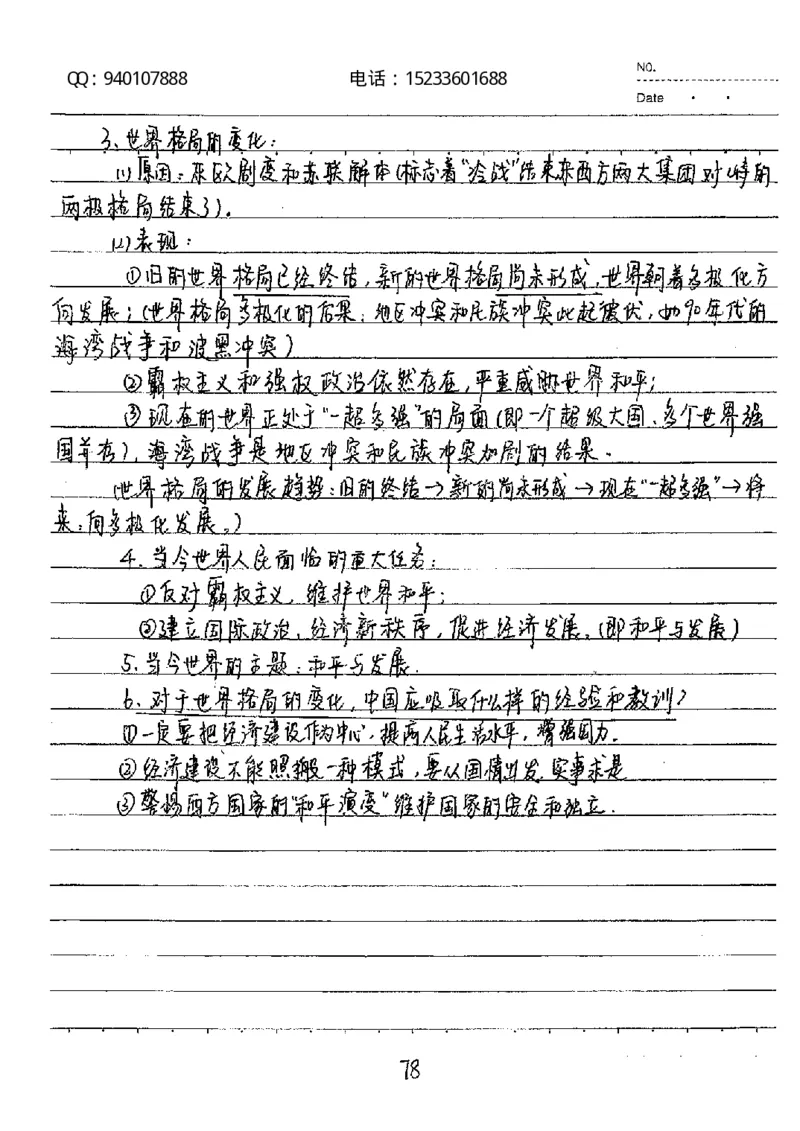 QQ：940107888 电话：15233601688 NO.
Date
3、世界格局的变化：
(1)原因：东欧剧变和苏联解体(标志着"冷战"结束东西方两大集团对峙的
两极格局结束了)。
(2)表现：
①旧的世界格局已经终结，新的世界格局尚未形成，世界朝着多极化方
向发展；(世界格局多极化的后果：地区冲突和民族冲突此起彼伏，如90年代的
海湾战争和波黑冲突)
②霸权主义和强权政治依然存在，严重威胁世界和平；
③现在的世界正处于"一超多强"的局面(即一个超级大国、多个世界强
国并存)，海湾战争是地区冲突和民族冲突加剧的结果。
(世界格局的发展趋势：旧的终结→新的尚未形成→现在"一超多强"→将
来：向多极化发展。)
4、当今世界人民面临的重大任务：
①反对霸权主义，维护世界和平；
②建立国际政治、经济新秩序，促进经济发展。(即和平与发展)
5、当今世界的主题：和平与发展.
6、对于世界格局的变化，中国应吸取什么样的经验和教训？
①一定要把经济建设作为中心，提高人民生活水平，增强国力.
②经济建设不能照搬一种模式，要从国情出发，实事求是
③警惕西方国家的"和平演变"维护国家的安全和独立.
78